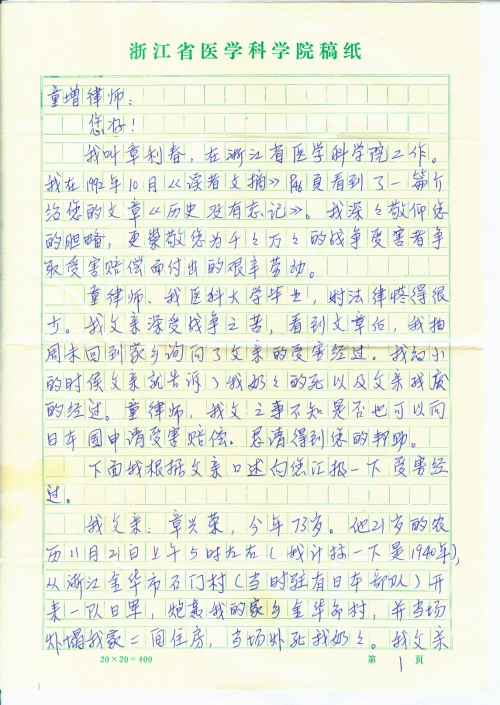 浙江省医学科学院稿纸
童增律师:
您好!
我叫章利春,在浙江省医学科学院工作。
我在1992年10月《读者文摘》扉页看到了一篇介
绍您的文章《历史没有忘记》。我深々敬仰您
的胆略,更崇敬您为千々万々的战争受害者争
取受害赔偿而付出的艰辛劳动。
童律师、我医科大学毕业,对法律懂得很
少。我父亲深受战争之苦,看到文章后,我抽
周末回到家乡询问了父亲的受害经过。我幼小
的时候父亲就告诉了我奶々的死以及父亲残废
的经过。童律师,我父之事不知是否也可以向
日本国申请受害赔偿。恳请得到您的帮助。
下面我根据父亲口述向您汇报一下受害经
过。
我父亲:章兴荣,今年73岁。他21岁的农
历11月21日上午5时左右(我计算一下是1940年),
从浙江金华市石门村(当时驻有日本部队)开
来一队日军,炮轰我的家乡金华 村,并当场
炸塌我家二间住房,当场炸死我奶々。我父亲
20×20=400
第1页